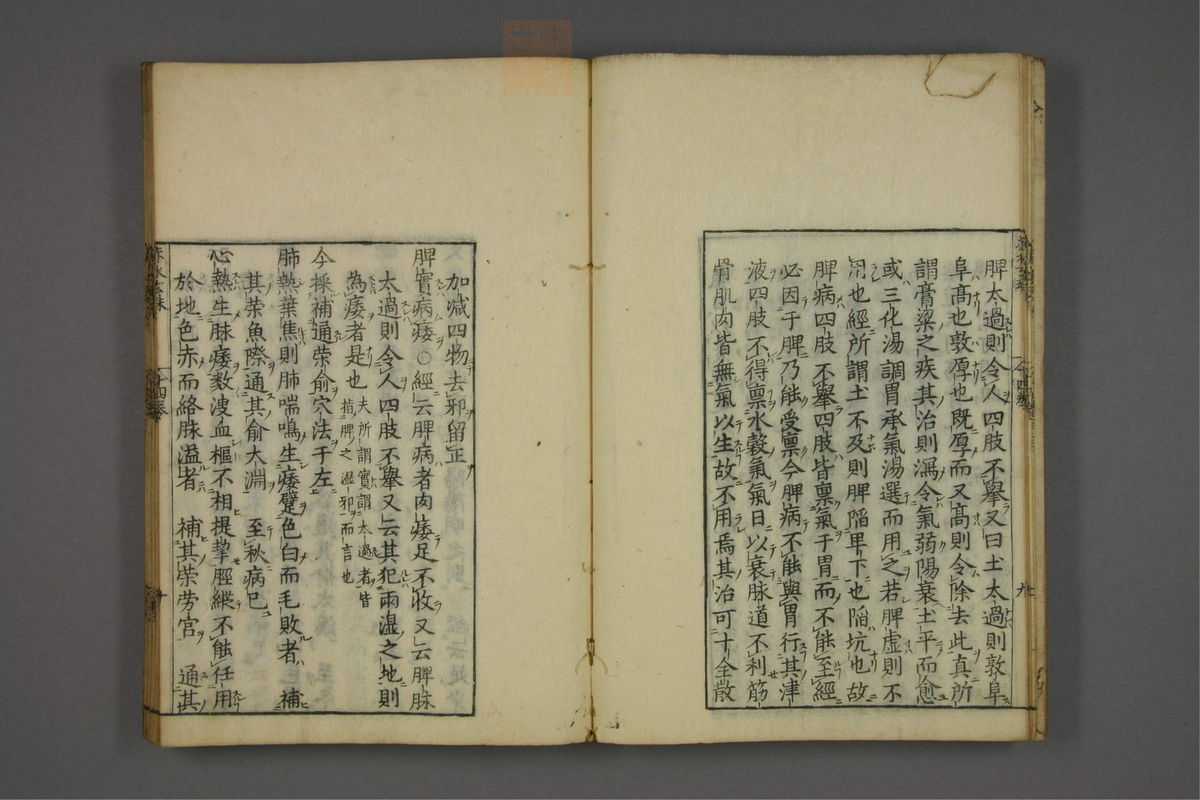 脾太過則令人四肢不舉又曰土太過則敦阜
阜髙也敦厚也既厚而又髙則令除去此真所
謂膏粱之疾其治則瀉令氣弱陽衰土平而愈
或三化湯調胃承氣湯選而用之若脾虚則不
用也經所謂土不及則脾陥卑下也陥坑也故
脾病四肢不舉四肢皆禀氣于胃而不能至經
必因于脾乃能受禀今脾病不能與胃行其津
液四肢不得禀水穀氣氣日以衰脉道不利筋
骨肌肉皆無氣以生故不用焉其治可十全散
加减四物去邪留正
脾實病痿○經云脾病者肉痿足不收又云脾脉
太過則令人四肢不舉又云其犯雨湿之地則
為痿者是也夫所謂實謂太過者皆
指脾之湿邪而言也
今採補通荣俞穴法于左
肺熱葉焦則肺喘鳴生痿躄色白而毛敗者 補
其荣魚際通其俞大淵 至秋病已
心熱生脉痿數溲血樞不相提挈脛縱不能任用
於地色赤而絡脉溢者 補其荣劳宮 通其
十四卷
九
十